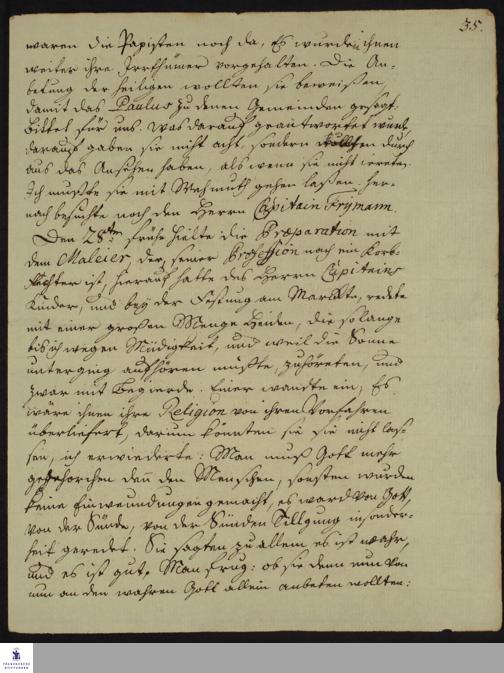 35.
waren die Papisten noch da, Es wurden ihnen
weiter ihre Irrthümer vorgehalten. Die An-
betung der Heiligen wollten sie beweisen,
damit das Paulus zu denen Gemeinden gesagt:
bittet für uns. Was darauf geantwortet wurde,
darauf gaben sie nicht acht, sondern wollten durch
aus das Ansehen haben, als wenn sie nicht irreten.
Ich mußte sie mit Wehmuth gehen laßen. Her-
nach besuchte noch den Herrn Capitain Frymann.
Den 28ten frühe hielte die Præparation mit
dem Maleier, der, seiner Profession nach ein Korb-
flechter ist, hierauf hatte des Herrn Capitains
Kinder, und bey der Festung am Marckte, redete
mit einer großen Menge Heiden, die so lange
bis ich wegen Müdigkeit, und weil die Sonne
unterging aufhören mußte, zuhöreten, und
zwar mit Begierde. Einer wandte ein, Es
wäre ihnen ihre Religion von ihren Vorfahren
überliefert, darum könnten sie sie nicht las-
sen, ich erwiederte: Man muß Gott mehr
gehorchen denn den Menschen, sonsten wurden
keine Einwendungen gemacht, es ward von Gott,
von der Sünde, von der Sünden Tillgung insonder-
heit geredet. Sie sagten zu allem es ist wahr,
und es ist gut. Man frug: ob sie denn nun von
nun an den wahren Gott allein anbeten wollten:
FRANCKESCHE
STIFTUNGEN